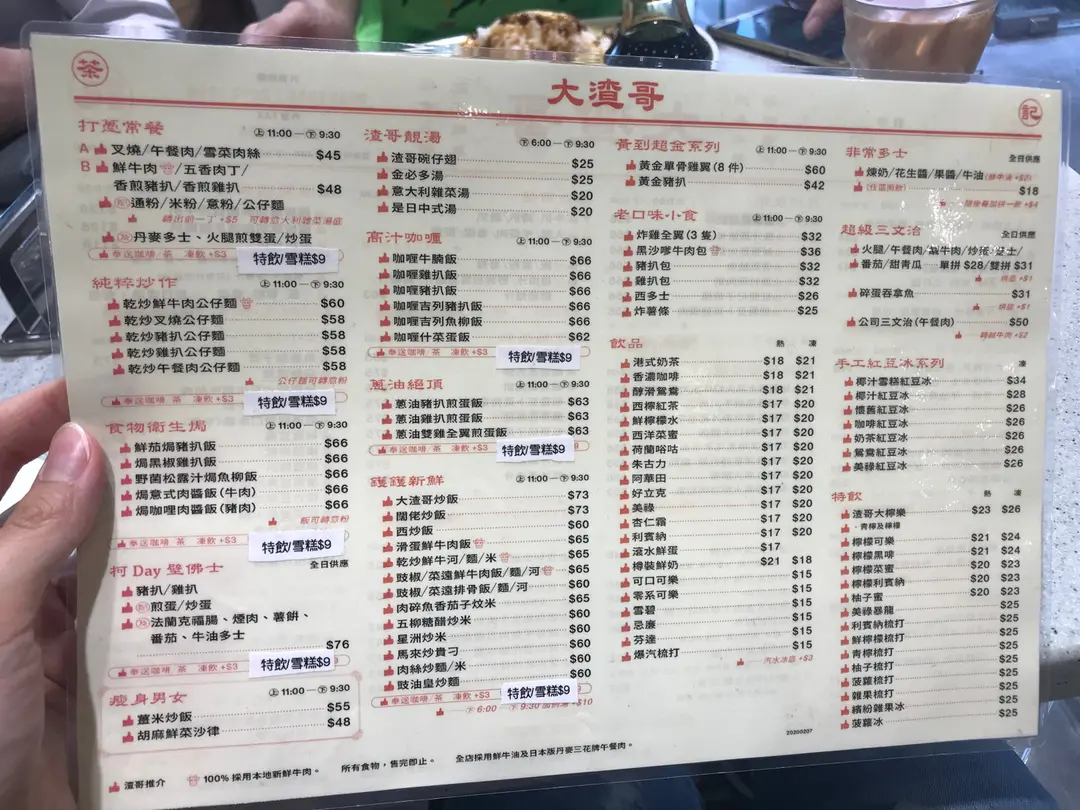 茶
大渣哥
記
打蔥常餐 上11:00—下9:30
A 叉燒/午餐肉/雪菜肉絲 $45
B 鮮牛肉/五香肉丁/
香煎豬扒/香煎雞扒 $48
配通粉/米粉/意粉/公仔麵
轉出前一丁+$5 可轉意大利雜菜湯底
及丹麥多士、火腿煎雙蛋/炒蛋
奉送咖啡/茶 凍飲+$3 特飲/雪糕$9
純粹炒作 上11:00—下9:30
乾炒鮮牛肉公仔麵 $60
乾炒叉燒公仔麵 $58
乾炒豬扒公仔麵 $58
乾炒雞扒公仔麵 $58
乾炒午餐肉公仔麵 $58
公仔麵可轉意粉
奉送咖啡/茶 凍飲+$3 特飲/雪糕$9
食物衛生焗 上11:00—下9:30
鮮茄焗豬扒飯 $66
焗黑椒雞扒飯 $66
野菌松露汁焗魚柳飯 $66
焗意式肉醬飯(牛肉) $66
焗咖喱肉醬飯(豬肉) $66
飯可轉意粉
奉送咖啡/茶 凍飲+$3 特飲/雪糕$9
柯 Day 壁佛士 全日供應
豬扒/雞扒
配煎蛋/炒蛋
及法蘭克福腸、煙肉、薯餅、
番茄、牛油多士
$76
奉送咖啡/茶 凍飲+$3 特飲/雪糕$9
瘦身男女 上11:00—下9:30
薑米炒飯 $55
胡麻鮮菜沙律 $48
渣哥靚湯 下6:00—下9:30
渣哥碗仔翅 $25
金必多湯 $25
意大利雜菜湯 $20
是日中式湯 $20
高汁咖喱 上11:00—下9:30
咖喱牛腩飯 $66
咖喱雞扒飯 $66
咖喱豬扒飯 $66
咖喱吉列豬扒飯 $66
咖喱吉列魚柳飯 $66
咖喱什菜蛋飯 $62
奉送咖啡/茶 凍飲+$3 特飲/雪糕$9
蔥油絕頂 上11:00—下9:30
蔥油豬扒煎蛋飯 $63
蔥油雞扒煎蛋飯 $63
蔥油雙雞全翼煎蛋飯 $63
奉送咖啡/茶 凍飲+$3 特飲/雪糕$9
鑊鑊新鮮 上11:00—下9:30
大渣哥炒飯 $73
闊佬炒飯 $73
西炒飯 $60
滑蛋鮮牛肉飯 $65
乾炒鮮牛河/麵/米 $65
豉椒/菜遠鮮牛肉飯/麵/河 $65
豉椒/菜遠排骨飯/麵/河 $60
肉碎魚香茄子炆米 $65
五柳糖醋炒米 $60
星洲炒米 $60
馬來炒貴刁 $60
肉絲炒麵/米 $60
豉油皇炒麵 $60
奉送咖啡/茶 凍飲+$3 特飲/雪糕$9
下6:00—下9:30 +$10
黃到超金系列 上11:00—下9:30
黃金單骨雞翼(8 件) $60
黃金豬扒 $42
老口味小食 上11:00—下9:30
炸雞全翼(3 隻) $32
黑沙嗲牛肉包 $36
豬扒包 $32
雞扒包 $32
西多士 $26
炸薯條 $25
飲品 熱 凍
港式奶茶 $18 $21
香濃咖啡 $18 $21
醇滑鴛鴦 $18 $21
西檸紅茶 $17 $20
鮮檸檬水 $17 $20
西洋菜蜜 $17 $20
荷蘭唂咕 $17 $20
朱古力 $17 $20
阿華田 $17 $20
好立克 $17 $20
美祿 $17 $20
杏仁霜 $17 $20
利賓納 $17 $20
滾水鮮蛋 $17
樽裝鮮奶 $21 $18
可口可樂 $15
零系可樂 $15
雪碧 $15
忌廉 $15
芬達 $15
爆汽梳打 $15
汽水冰底 +$3
非常多士 全日供應
煉奶/花生醬/果醬/牛油
(任選兩款) $18
+$4
超級三文治 全日供應
火腿/午餐肉/鹹牛肉/炒蛋/芝士/
番茄/甜青瓜 單拼 $28/雙拼 $31
烘底 +$1
碎蛋吞拿魚 $31
烘底 +$1
公司三文治(午餐肉) $50
轉鹹牛肉 +$2
手工紅豆冰系列 凍
椰汁雪糕紅豆冰 $34
椰汁紅豆冰 $28
懷舊紅豆冰 $26
咖啡紅豆冰 $26
奶茶紅豆冰 $26
鴛鴦紅豆冰 $26
美祿紅豆冰 $26
特飲 熱 凍
渣哥大檸樂 $23 $26
- 青檸及檸檬
檸檬可樂 $21 $24
檸檬黑啡 $21 $24
檸檬菜蜜 $20 $23
檸檬利賓納 $20 $23
柚子蜜 $20 $23
美祿暴龍 $25
利賓納梳打 $25
鮮檸檬梳打 $25
青檸梳打 $25
柚子梳打 $25
菠蘿梳打 $25
雜果梳打 $25
繽紛雜果冰 $25
菠蘿冰 $25
20200207
渣哥推介 100% 採用本地新鮮牛肉。 所有食物，售完即止。 全店採用鮮牛油及日本版丹麥三花牌午餐肉。